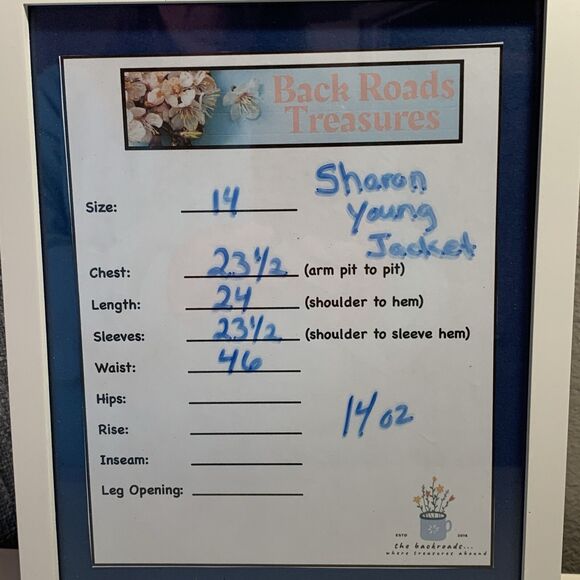 Back Roads
Treasures
Sharon
Young
Jacket
Size: 14
Chest: 23 1/2 (arm pit to pit)
Length: 24 (shoulder to hem)
Sleeves: 23 1/2 (shoulder to sleeve hem)
Waist: 46
Hips:
Rise:
14 oz
Inseam:
Leg Opening:
ESTD 2018
the backroads...
where treasures abound